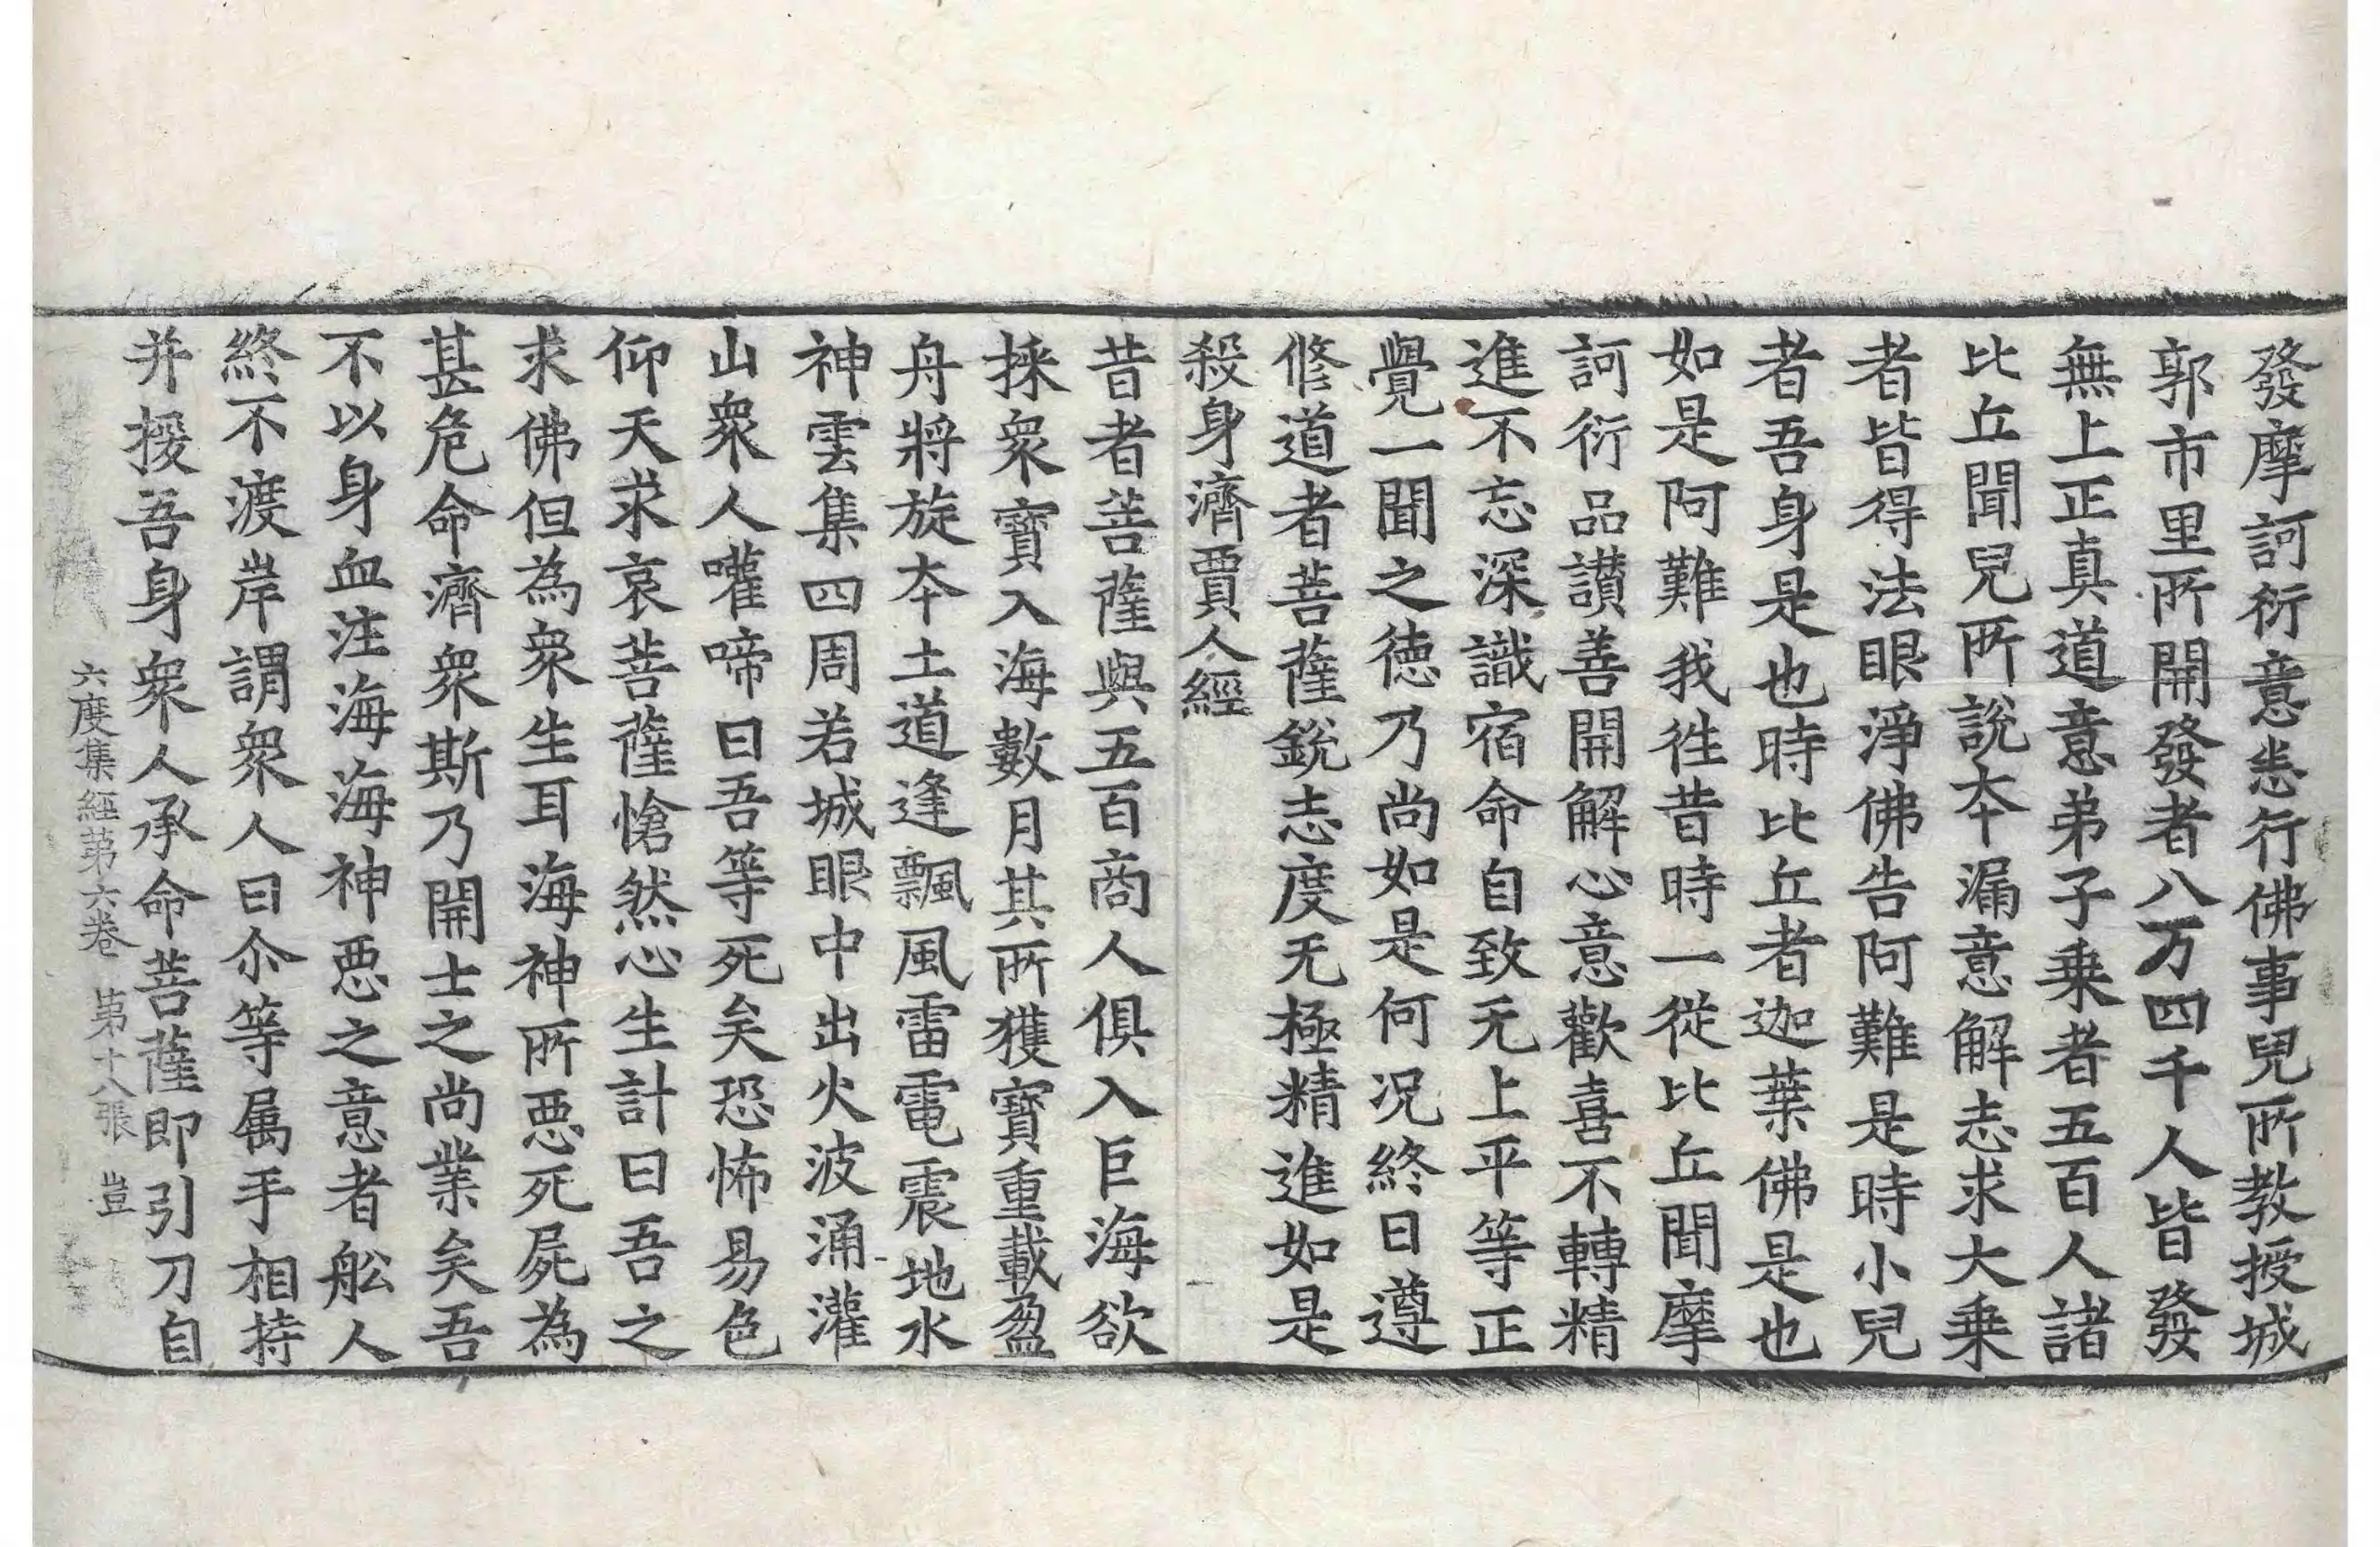 發摩訶衍意恙行佛事兒所教授城
郭市里所開發者八万四千人皆發
無上正真道意弟子乗者五百人諸
比丘聞兒所說本漏意解志求大乗
者皆得法眼淨佛告阿難是時小兒
者吾身是也時比丘者迦葉佛是也
如是阿難我徃昔時一從比丘聞摩
訶衍品讃善開解心意歡喜不轉精
進不忘深識宿命自致无上平等正
覺一聞之徳乃尚如是何况終日遵
修道者菩薩銳志度无極精進如是
殺身濟賈人經
昔者菩薩與五百商人俱入巨海欲
採衆寶入海數月其所獲寶重載盈
舟將旋本土道逢飄風雷電震地水
神雲集四周若城眼中出火波涌灌
山衆人嚾啼曰吾等死矣恐怖易色
仰天求哀菩薩愴然心生計曰吾之
求佛但為衆生耳海神所惡死屍為
甚危命濟衆斯乃開士之尚業矣吾
不以身血注海海神惡之意者舩人
終不渡岸謂衆人曰尒等属手相持
并援吾身衆人承命菩薩即引刀自
六度集經苐六卷 第十八張 豈